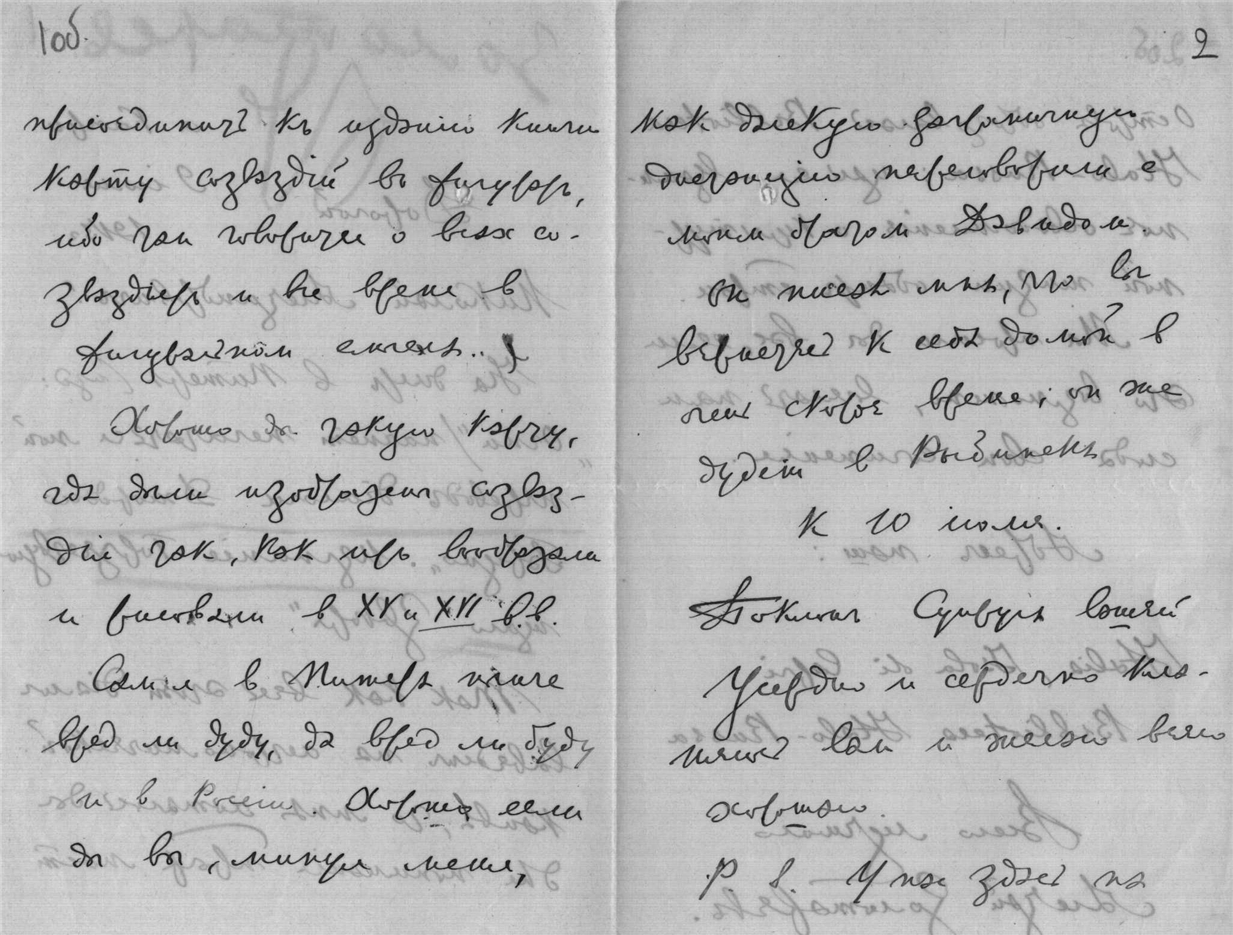 1об.
присоединить къ изданию книги
карту созвѣздiй въ фигурах,
ибо там говорится о всѣх со-
звѣздиях и все время в
фигуральном смыслѣ..)
Хорошо бы такую карту,
гдѣ были изображены созвѣз-
дiя так, как их воображали
и рисовали в XV и XVI в.в.
Сам я в Питерѣ нынче
вряд ли буду, да вряд ли буду
и в России. Хорошо если
бы вы, минуя меня,
2
как далекую заграничную
дистанцiю переговорили с
моим братом Давидом.
Он писал мнѣ, что вы
вернетесь к себѣ домой в
очень скором времени; он же
будет в Рыбинскѣ
к 10 июля.
Поклоны Супругѣ вашей
Усердно и сердечно кла-
няюсь вам и желаю всего
хорошаго
P S. У нас здѣсь на